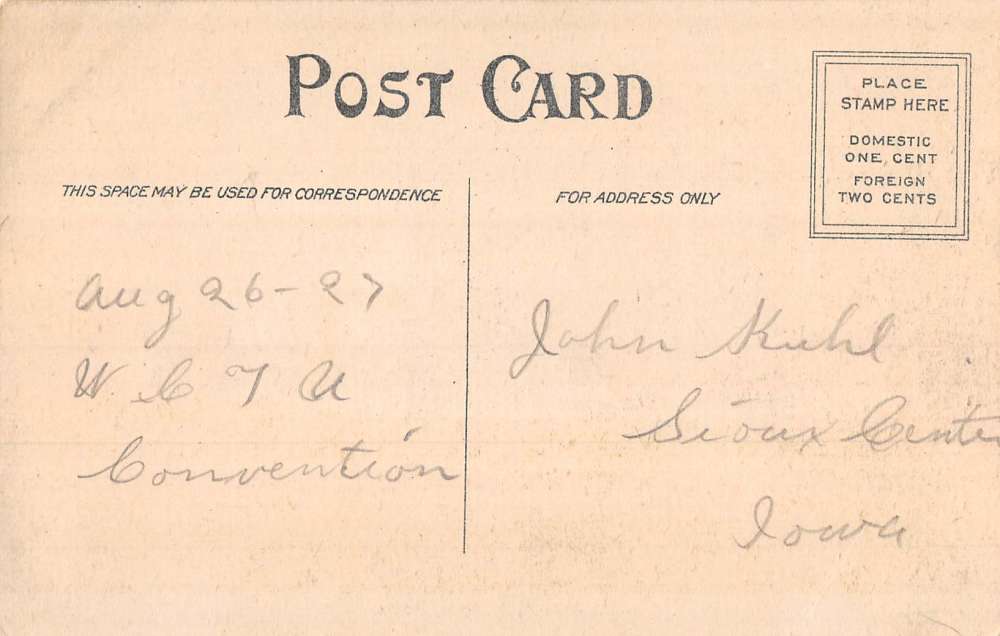 POST CARD
PLACE
STAMP HERE
DOMESTIC
ONE CENT
FOREIGN
TWO CENTS
THIS SPACE MAY BE USED FOR CORRESPONDENCE
FOR ADDRESS ONLY
Aug 26-27
W. C T U
Convention
John Kuhl
Sioux Cente
Iowa